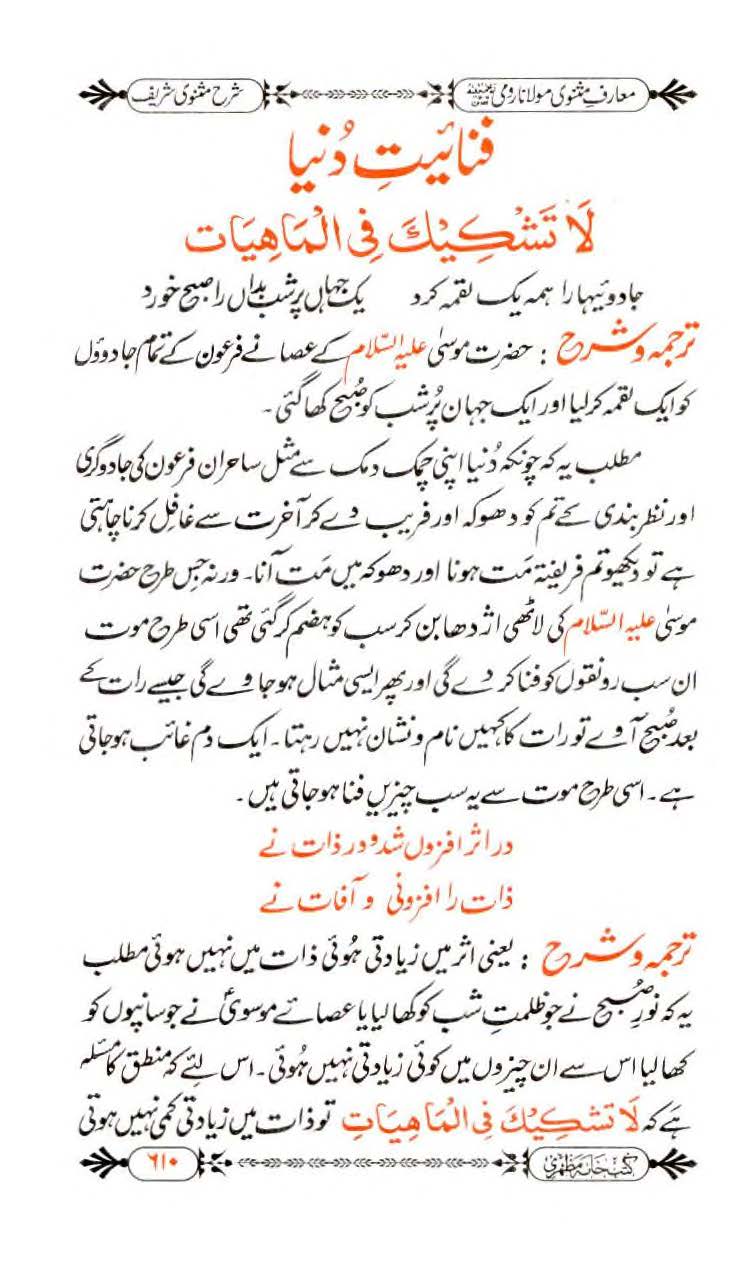 معارفِ مثنوی مولانا رومی رحمۃ اللہ علیہ
شرح مثنوی شریف
فنائیتِ دُنیا
لَا تَشْكِيْكَ فِى الْمَاهِيَات
جادوئیہا را ہمہ یک لقمہ کرد یک جہاں پر شب بداں را صبح خورد
ترجمہ و شرح : حضرت موسیٰ علیہ السّلام کے عصا نے فرعون کے تمام جادوؤں
کو ایک لقمہ کرلیا اور ایک جہان پُرشب کو صُبح کھاگئی۔
مطلب یہ کہ چونکہ دُنیا اپنی چمک دمک سے مثل ساحران فرعون کی جادوگری
اور نظر بندی کے تم کو دھوکہ اور فریب دے کر آخرت سے غافل کرنا چاہتی
ہے تو دیکھو تم فریفتہ مَت ہونا اور دھوکہ میں مَت آنا۔ ورنہ جس طرح حضرت
موسیٰ علیہ السّلام کی لاٹھی اژدھا بن کر سب کو ہضم کرگئی تھی اسی طرح موت
ان سب رونقوں کو فنا کر دے گی اور پھر ایسی مثال ہوجاوے گی جیسے رات کے
بعد صُبح آوے تو رات کا کہیں نام و نشان نہیں رہتا۔ ایک دم غائب ہوجاتی
ہے۔ اسی طرح موت سے یہ سب چیزیں فنا ہوجاتی ہیں۔
در اثر افزوں شد و در ذات نے
ذات را افزونی و آفات نے
ترجمہ و شرح : یعنی اثر میں زیادتی ہُوئی ذات میں نہیں ہوئی مطلب
یہ کہ نورِ صُبح نے جو ظلمتِ شب کو کھا لیا یا عصائے موسویؑ نے جو سانپوں کو
کھا لیا اس سے ان چیزوں میں کوئی زیادتی نہیں ہُوئی۔ اس لئے کہ منطق کا مسئلہ
ہَے کہ لَا تَشْكِيْكَ فِى الْمَاهِيَاتِ تو ذات میں زیادتی کمی نہیں ہوتی
کتب خانہ مظہری
۶۱۰